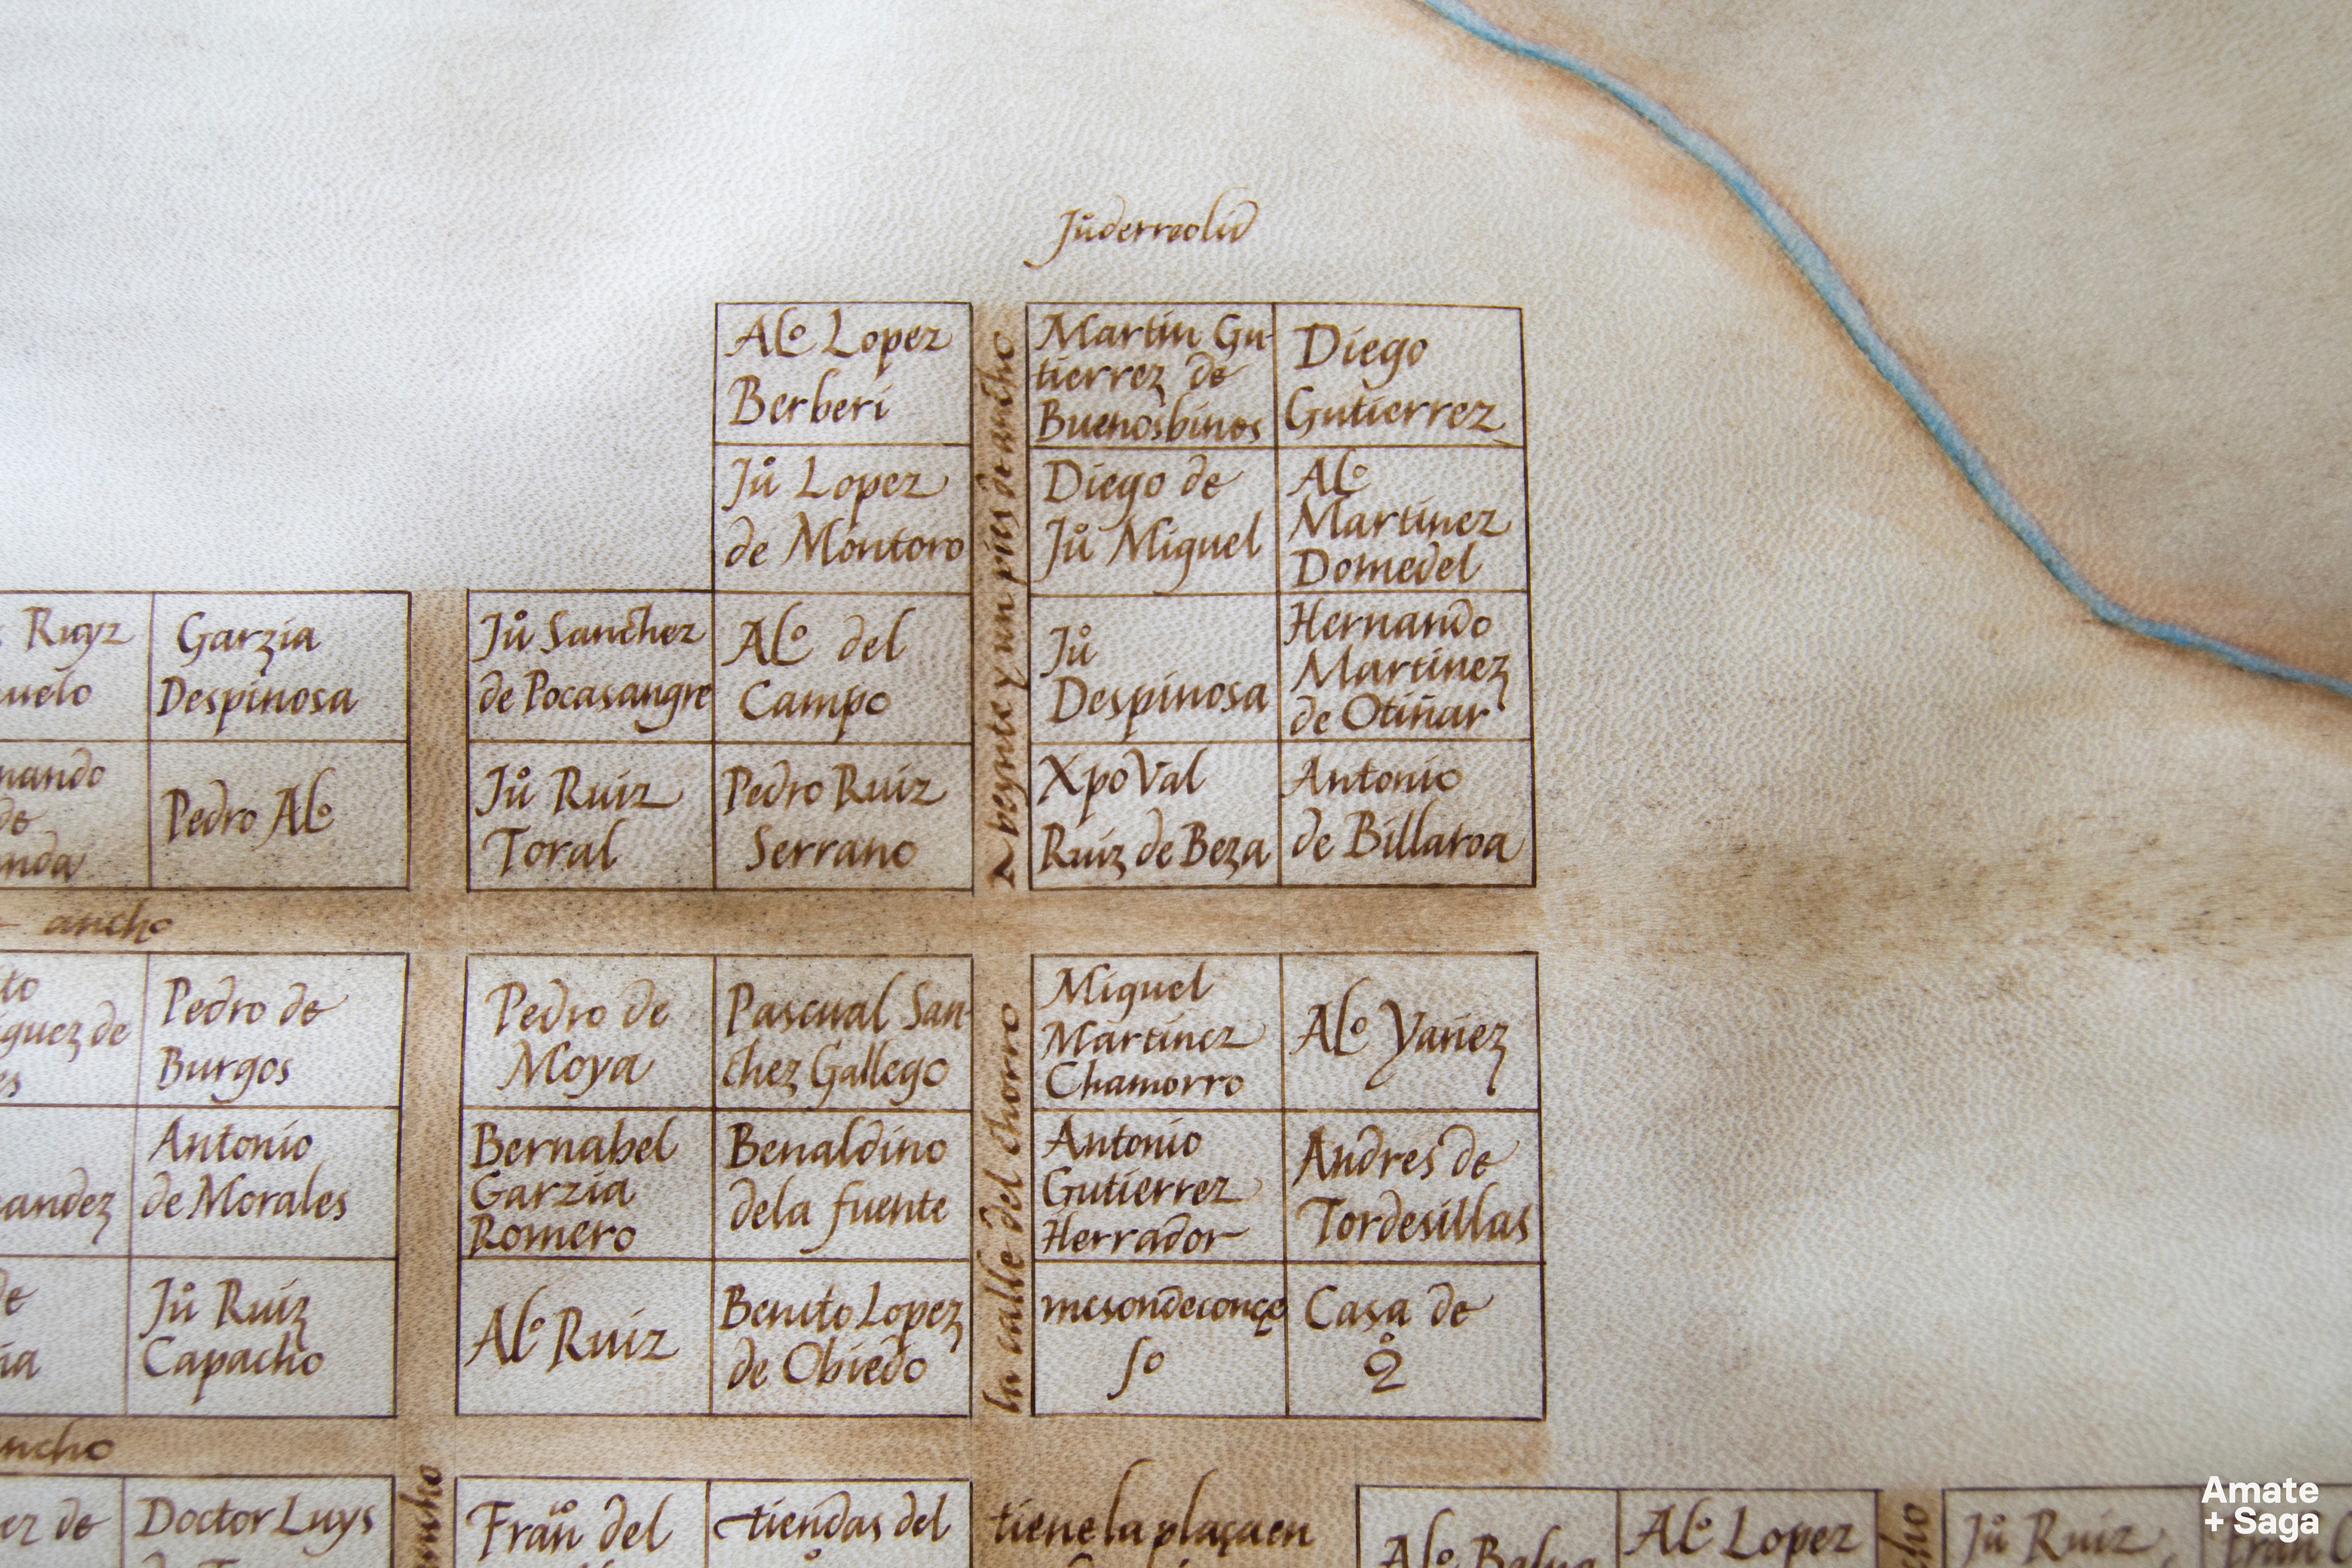 Jů derreolid
Alº Lopez
Berberi
Martin Gu-
tierrez de
Buenosbinos
Diego
Gutierrez
Jů Lopez
de Montoro
Diego de
Jů Miguel
Alº
Martinez
Domedel
Ruyz
Garzia
Despinosa
Jů Sanchez
de Pocasangre
Alº del
Campo
Jů
Despinosa
Hernando
Martinez
de Otiñar
Pedro Alº
Jů Ruiz
Toral
Pedro Ruiz
Serrano
XpoVal
Ruiz de Beza
Antonio
de Billaroa
a beynte y un pies de ancho
ancho
Pedro de
Burgos
Pedro de
Moya
Pascual San-
chez Gallego
Miguel
Martinez
Chamorro
Alº Yañez
Antonio
de Morales
Bernabel
Garzia
Romero
Benaldino
dela fuente
Antonio
Gutierrez
Herrador
Andres de
Tordesillas
Jů Ruiz
Capacho
Alº Ruiz
Benito Lopez
de Obiedo
mesondeconçe
so
Casa de
la calle del chorro
ancho
Doctor Luys
Fran del
tiendas del
tiene la plaça en
Alº
Alº Lopez
Jů Ruiz
Amate
+ Saga